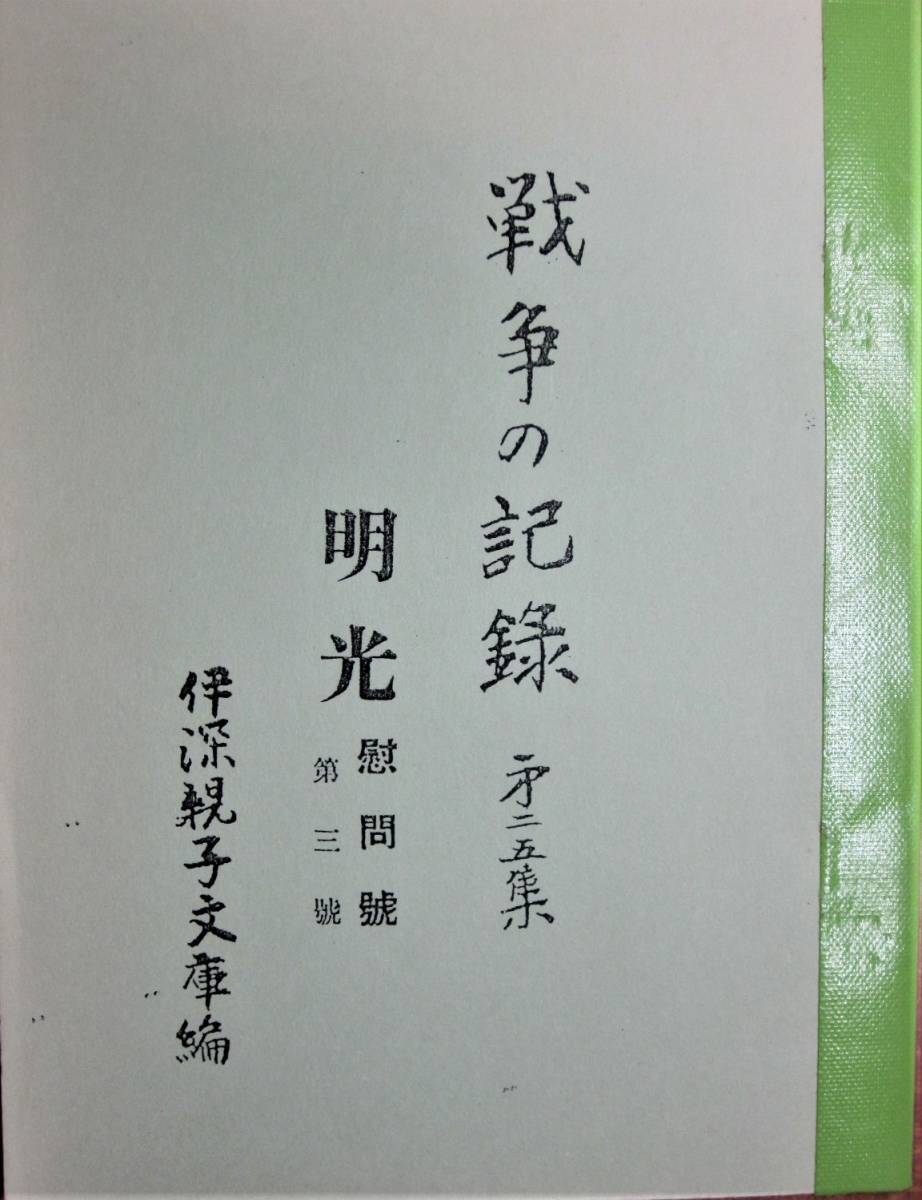 戦争の記録 才二五集
明光 慰問號
第三號
伊深親子文庫編